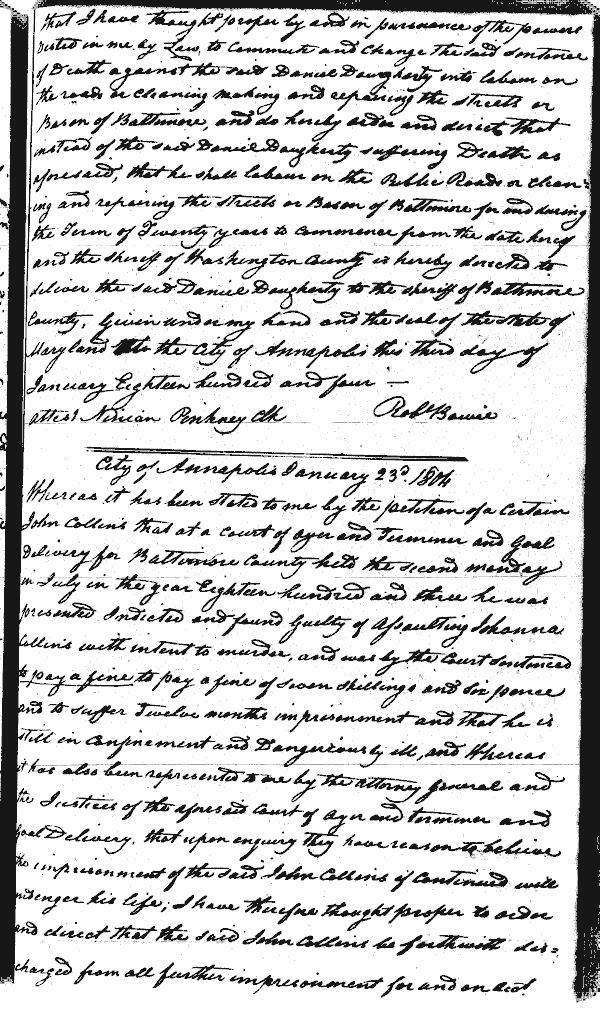 that I have thought proper by and in pursuance of the powers
vested in me by Law, to commute and change the said sentence
of Death against the said Daniel Daugherty into labour on
the roads or cleaning making and repairing the streets or
Bason of Baltimore, and do hereby order and direct that
instead of the said Daniel Daugherty suffering Death as
aforesaid, that he shall labour on the Public Roads or clean-
ing and repairing the streets or Bason of Baltimore for and during
the Term of Twenty years to commence from the date hereof
and the sheriff of Washington County is hereby directed to
deliver the said Daniel Daugherty to the sheriff of Baltimore
County, Given under my hand and the seal of the State of
Maryland the City of Annapolis this third day of
January Eighteen hundred and four —
attest Ninian Pinkney Clk Robt Bowie
City of Annapolis January 23d. 1804
Whereas it has been stated to me by the petition of a Certain
John Collins that at a Court of oyer and Terminer and Goal
Delivery for Baltimore County held the second monday
in July in the year Eighteen hundred and three he was
presented Indicted and found Guilty of Assaulting Johanna
Collins with intent to murder, and was by the Court Sentenced
to pay a fine to pay a fine of seven shillings and six pence
and to suffer Twelve months imprisonment and that he is
still in Confinement and Dangeriously ill, and Whereas
it has also been represented to me by the attorney general and
the Justices of the aforesaid Court of oyer and terminer and
Goal Delivery, that upon enquiry they have reason to believe
the imprisonment of the said John Collins if Continued will
endenger his life, I have therefore thought proper to order
and direct that the said John Collins be forthwith dis=
charged from all further imprisonment for and on acct.